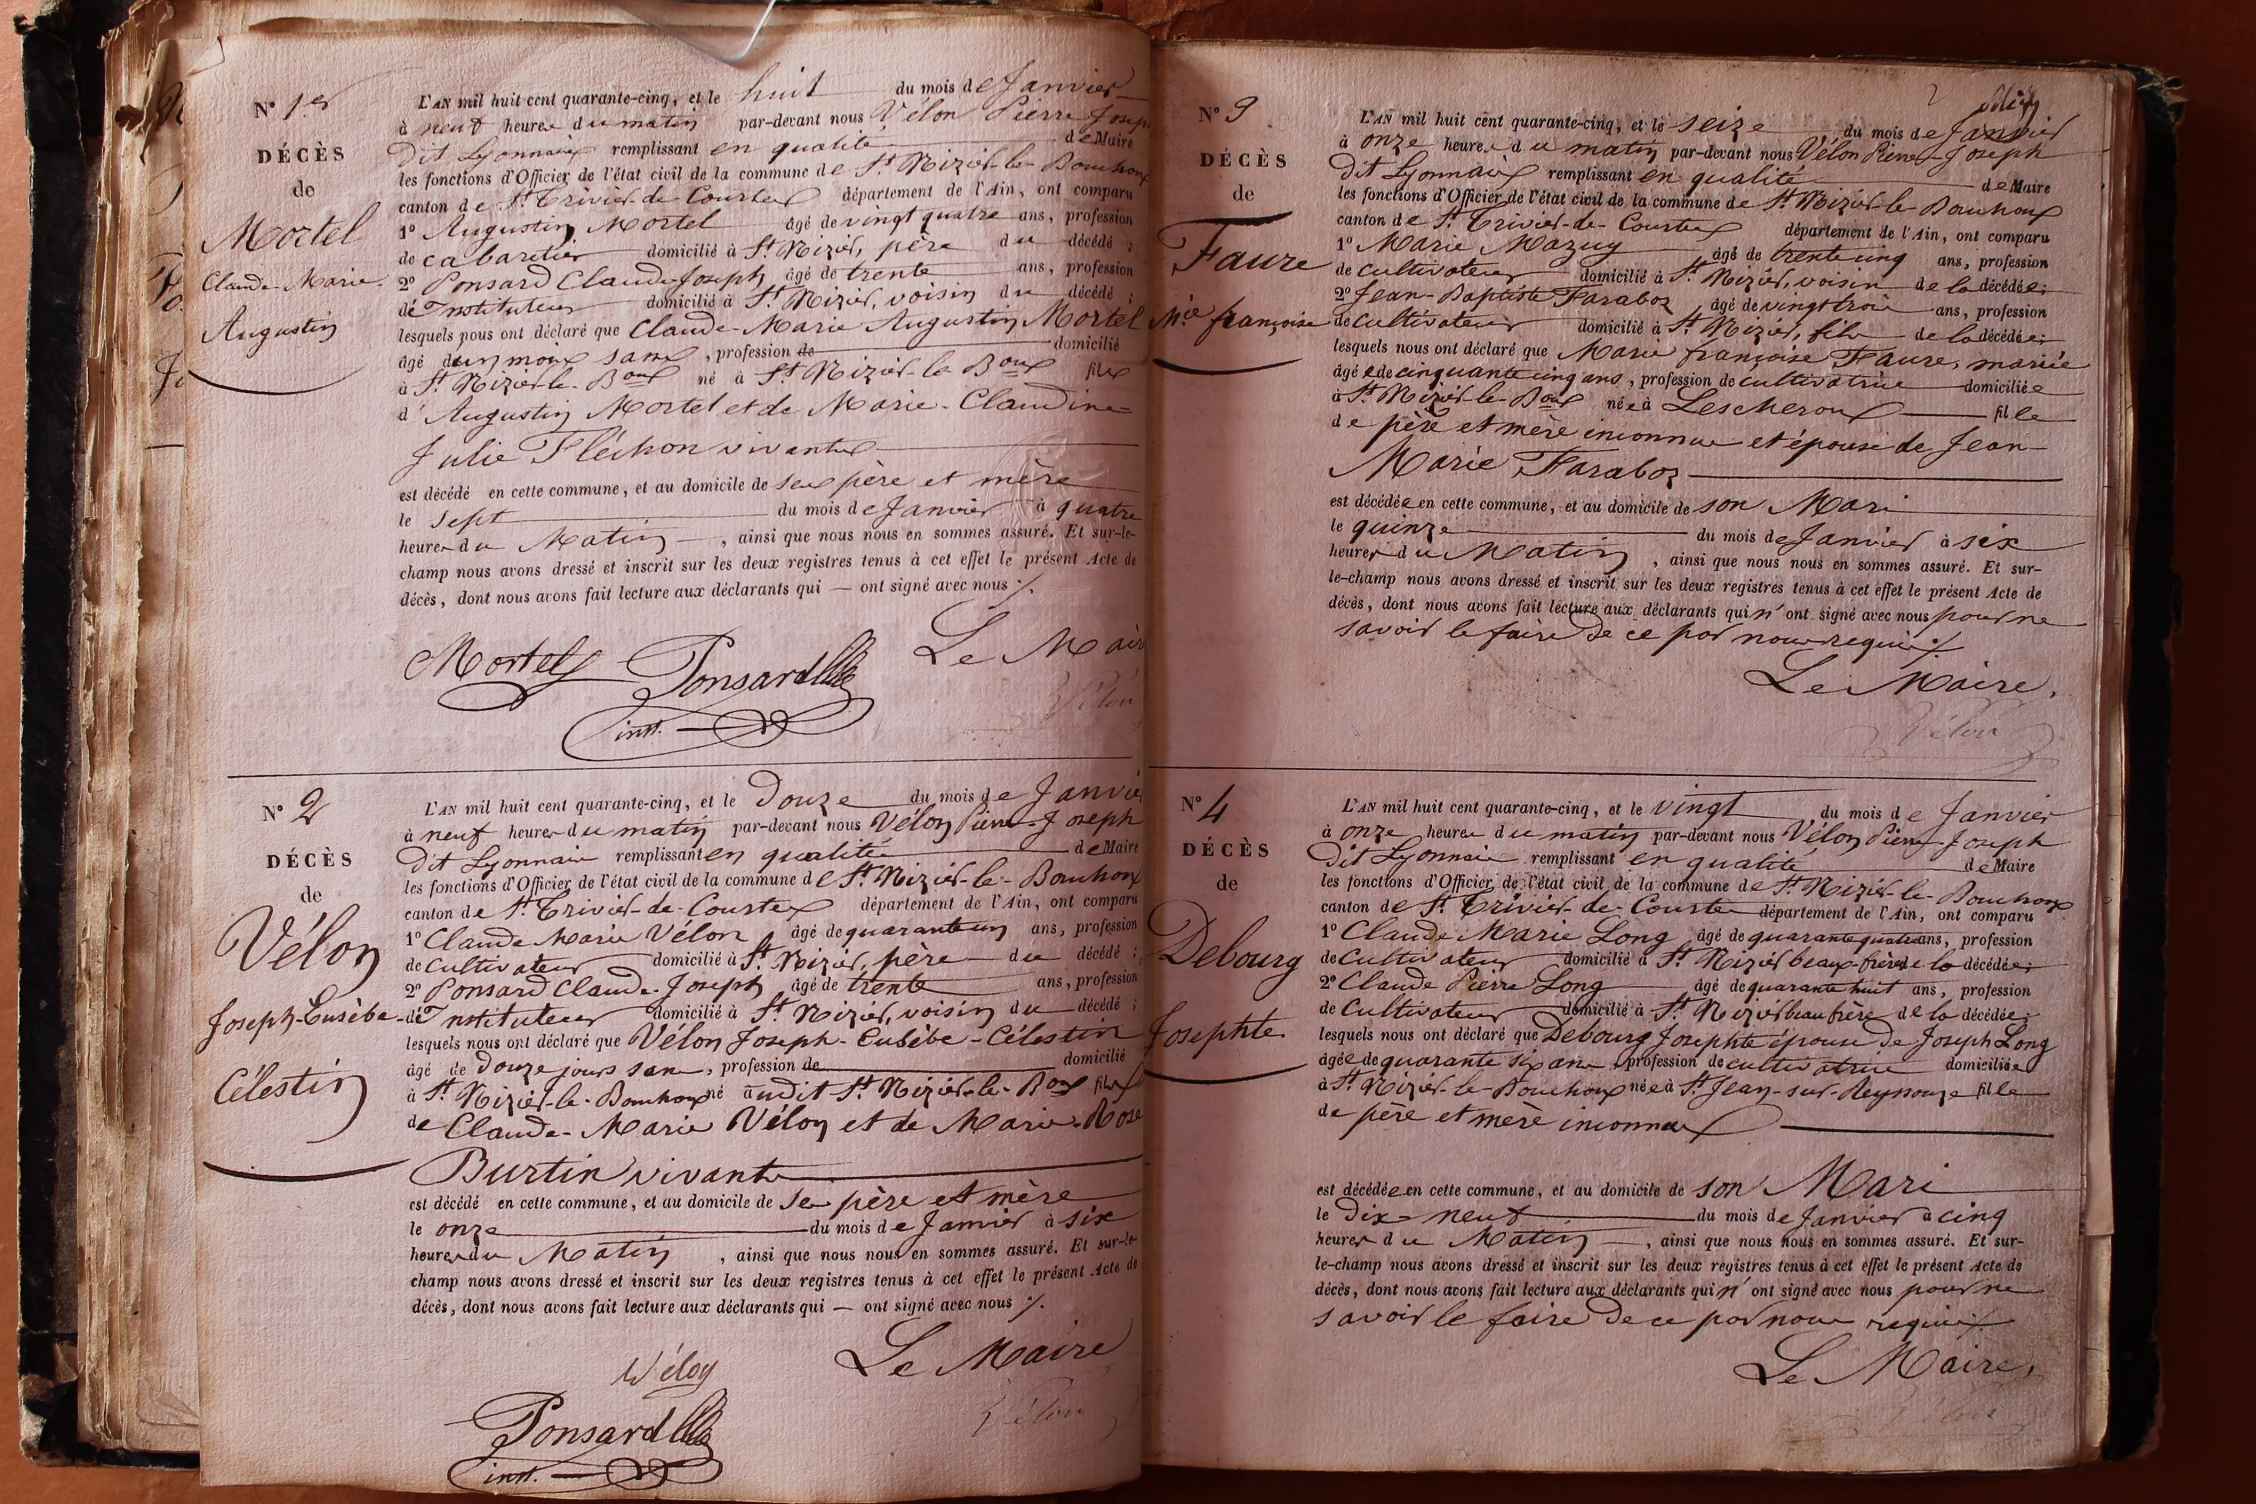 N° 1er
DÉCÈS
de
Mortel
Claude-Marie
Augustin
L'AN mil huit cent quarante-cinq, et le huit du mois de Janvier
à neuf heures du matin par-devant nous Vélon Pierre Joseph
dit Lyonnais remplissant en qualité de Maire
les fonctions d'Officier de l'état civil de la commune de St Nizier-le-Bouchoux
canton de St Trivier-de-Courtes département de l'Ain, ont comparu
1° Augustin Mortel âgé de vingt quatre ans, profession
de cabaretier domicilié à St Nizier, père du décédé ;
2° Ponsard Claude-Joseph âgé de trente ans, profession
de Instituteur domicilié à St Nizier, voisin du décédé ;
lesquels nous ont déclaré que Claude-Marie Augustin Mortel
âgé d'un mois sans, profession de domicilié
à St Nizier-le-Boux né à St Nizier-le Boux fils
d'Augustin Mortel et de Marie-Claudine=
Julie Fléchon vivants
est décédé en cette commune, et au domicile de ses père et mère
le sept du mois de Janvier à quatre
heures du Matin, ainsi que nous nous en sommes assuré. Et sur-le-
champ nous avons dressé et inscrit sur les deux registres tenus à cet effet le présent Acte de
décès, dont nous avons fait lecture aux déclarants qui — ont signé avec nous ./.
Mortel Ponsard Le Maire
inst. Vélon
N° 2
DÉCÈS
de
Vélon
Joseph-Eusèbe-
Célestin
L'AN mil huit cent quarante-cinq, et le Douze du mois de Janvier
à neuf heures du matin par-devant nous Vélon Pierre-Joseph
dit Lyonnais remplissant en qualité de Maire
les fonctions d'Officier de l'état civil de la commune de St Nizier-le-Bouchoux
canton de St Trivier-de-Courtes département de l'Ain, ont comparu
1° Claude Marie Vélon âgé de quarante un ans, profession
de Cultivateur domicilié à St Nizier, père du décédé ;
2° Ponsard Claude-Joseph âgé de trente ans, profession
de Instituteur domicilié à St Nizier, voisin du décédé ;
lesquels nous ont déclaré que Vélon Joseph-Eusèbe-Célestin
âgé de Douze jours sans, profession de domicilié
à St Nizier-le-Bouchoux né audit St Nizier-le-Boux fils
de Claude-Marie Vélon et de Marie-Rose
Burtin vivants
est décédé en cette commune, et au domicile de ses père et mère
le onze du mois de Janvier à six
heures du Matin, ainsi que nous nous en sommes assuré. Et sur-le-
champ nous avons dressé et inscrit sur les deux registres tenus à cet effet le présent Acte de
décès, dont nous avons fait lecture aux déclarants qui — ont signé avec nous ./.
Vélon Le Maire
Ponsard Vélon
inst.
N° 3
DÉCÈS
de
Faure
Mie françoise
L'AN mil huit cent quarante-cinq, et le seize du mois de Janvier
à onze heures du matin par-devant nous Vélon Pierre-Joseph
Dit Lyonnais remplissant en qualité de Maire
les fonctions d'Officier de l'état civil de la commune de St Nizier-le-Bouchoux
canton de St Trivier-de-Courtes département de l'Ain, ont comparu
1° Marie Mazuy âgé de trente cinq ans, profession
de cultivateur domicilié à St Nizier, voisin de la décédée ;
2° Jean-Baptiste Faraboz âgé de vingt trois ans, profession
de cultivateur domicilié à St Nizier, fils de la décédée ;
lesquels nous ont déclaré que Marie françoise Faure, mariée
âgée de cinquante cinq ans, profession de cultivatrice domiciliée
à St Nizier-le-Boux née à Lescheroux fille
de père et mère inconnus et épouse de Jean-
Marie Faraboz
est décédée en cette commune, et au domicile de son Mari
le quinze du mois de Janvier à six
heures du Matin, ainsi que nous nous en sommes assuré. Et sur-
le-champ nous avons dressé et inscrit sur les deux registres tenus à cet effet le présent Acte de
décès, dont nous avons fait lecture aux déclarants qui n'ont signé avec nous pour ne
savoir le faire de ce par nous requis ./.
Le Maire,
Vélon
N° 4
DÉCÈS
de
Debourg
Josephte
L'AN mil huit cent quarante-cinq, et le vingt du mois de Janvier
à onze heures du matin par-devant nous Vélon Pierre-Joseph
Dit Lyonnais remplissant en qualité de Maire
les fonctions d'Officier de l'état civil de la commune de St Nizier-le-Bouchoux
canton de St Trivier-de-Courtes département de l'Ain, ont comparu
1° Claude Marie Long âgé de quarante quatre ans, profession
de Cultivateur domicilié à St Nizier beau-frère de la décédée ;
2° Claude Pierre Long âgé de quarante huit ans, profession
de Cultivateur domicilié à St Nizier beau frère de la décédée ;
lesquels nous ont déclaré que Debourg Josephte épouse de Joseph Long
âgée de quarante six ans, profession de cultivatrice domiciliée
à St Nizier-le-Bouchoux née à St Jean-sur-Reyssouze fille
de père et mère inconnus
est décédée en cette commune, et au domicile de son Mari
le Dix-neuf du mois de Janvier à cinq
heures du Matin, ainsi que nous nous en sommes assuré. Et sur-
le-champ nous avons dressé et inscrit sur les deux registres tenus à cet effet le présent Acte de
décès, dont nous avons fait lecture aux déclarants qui n'ont signé avec nous pour ne
savoir le faire de ce par nous requis ./.
Le Maire,
Vélon